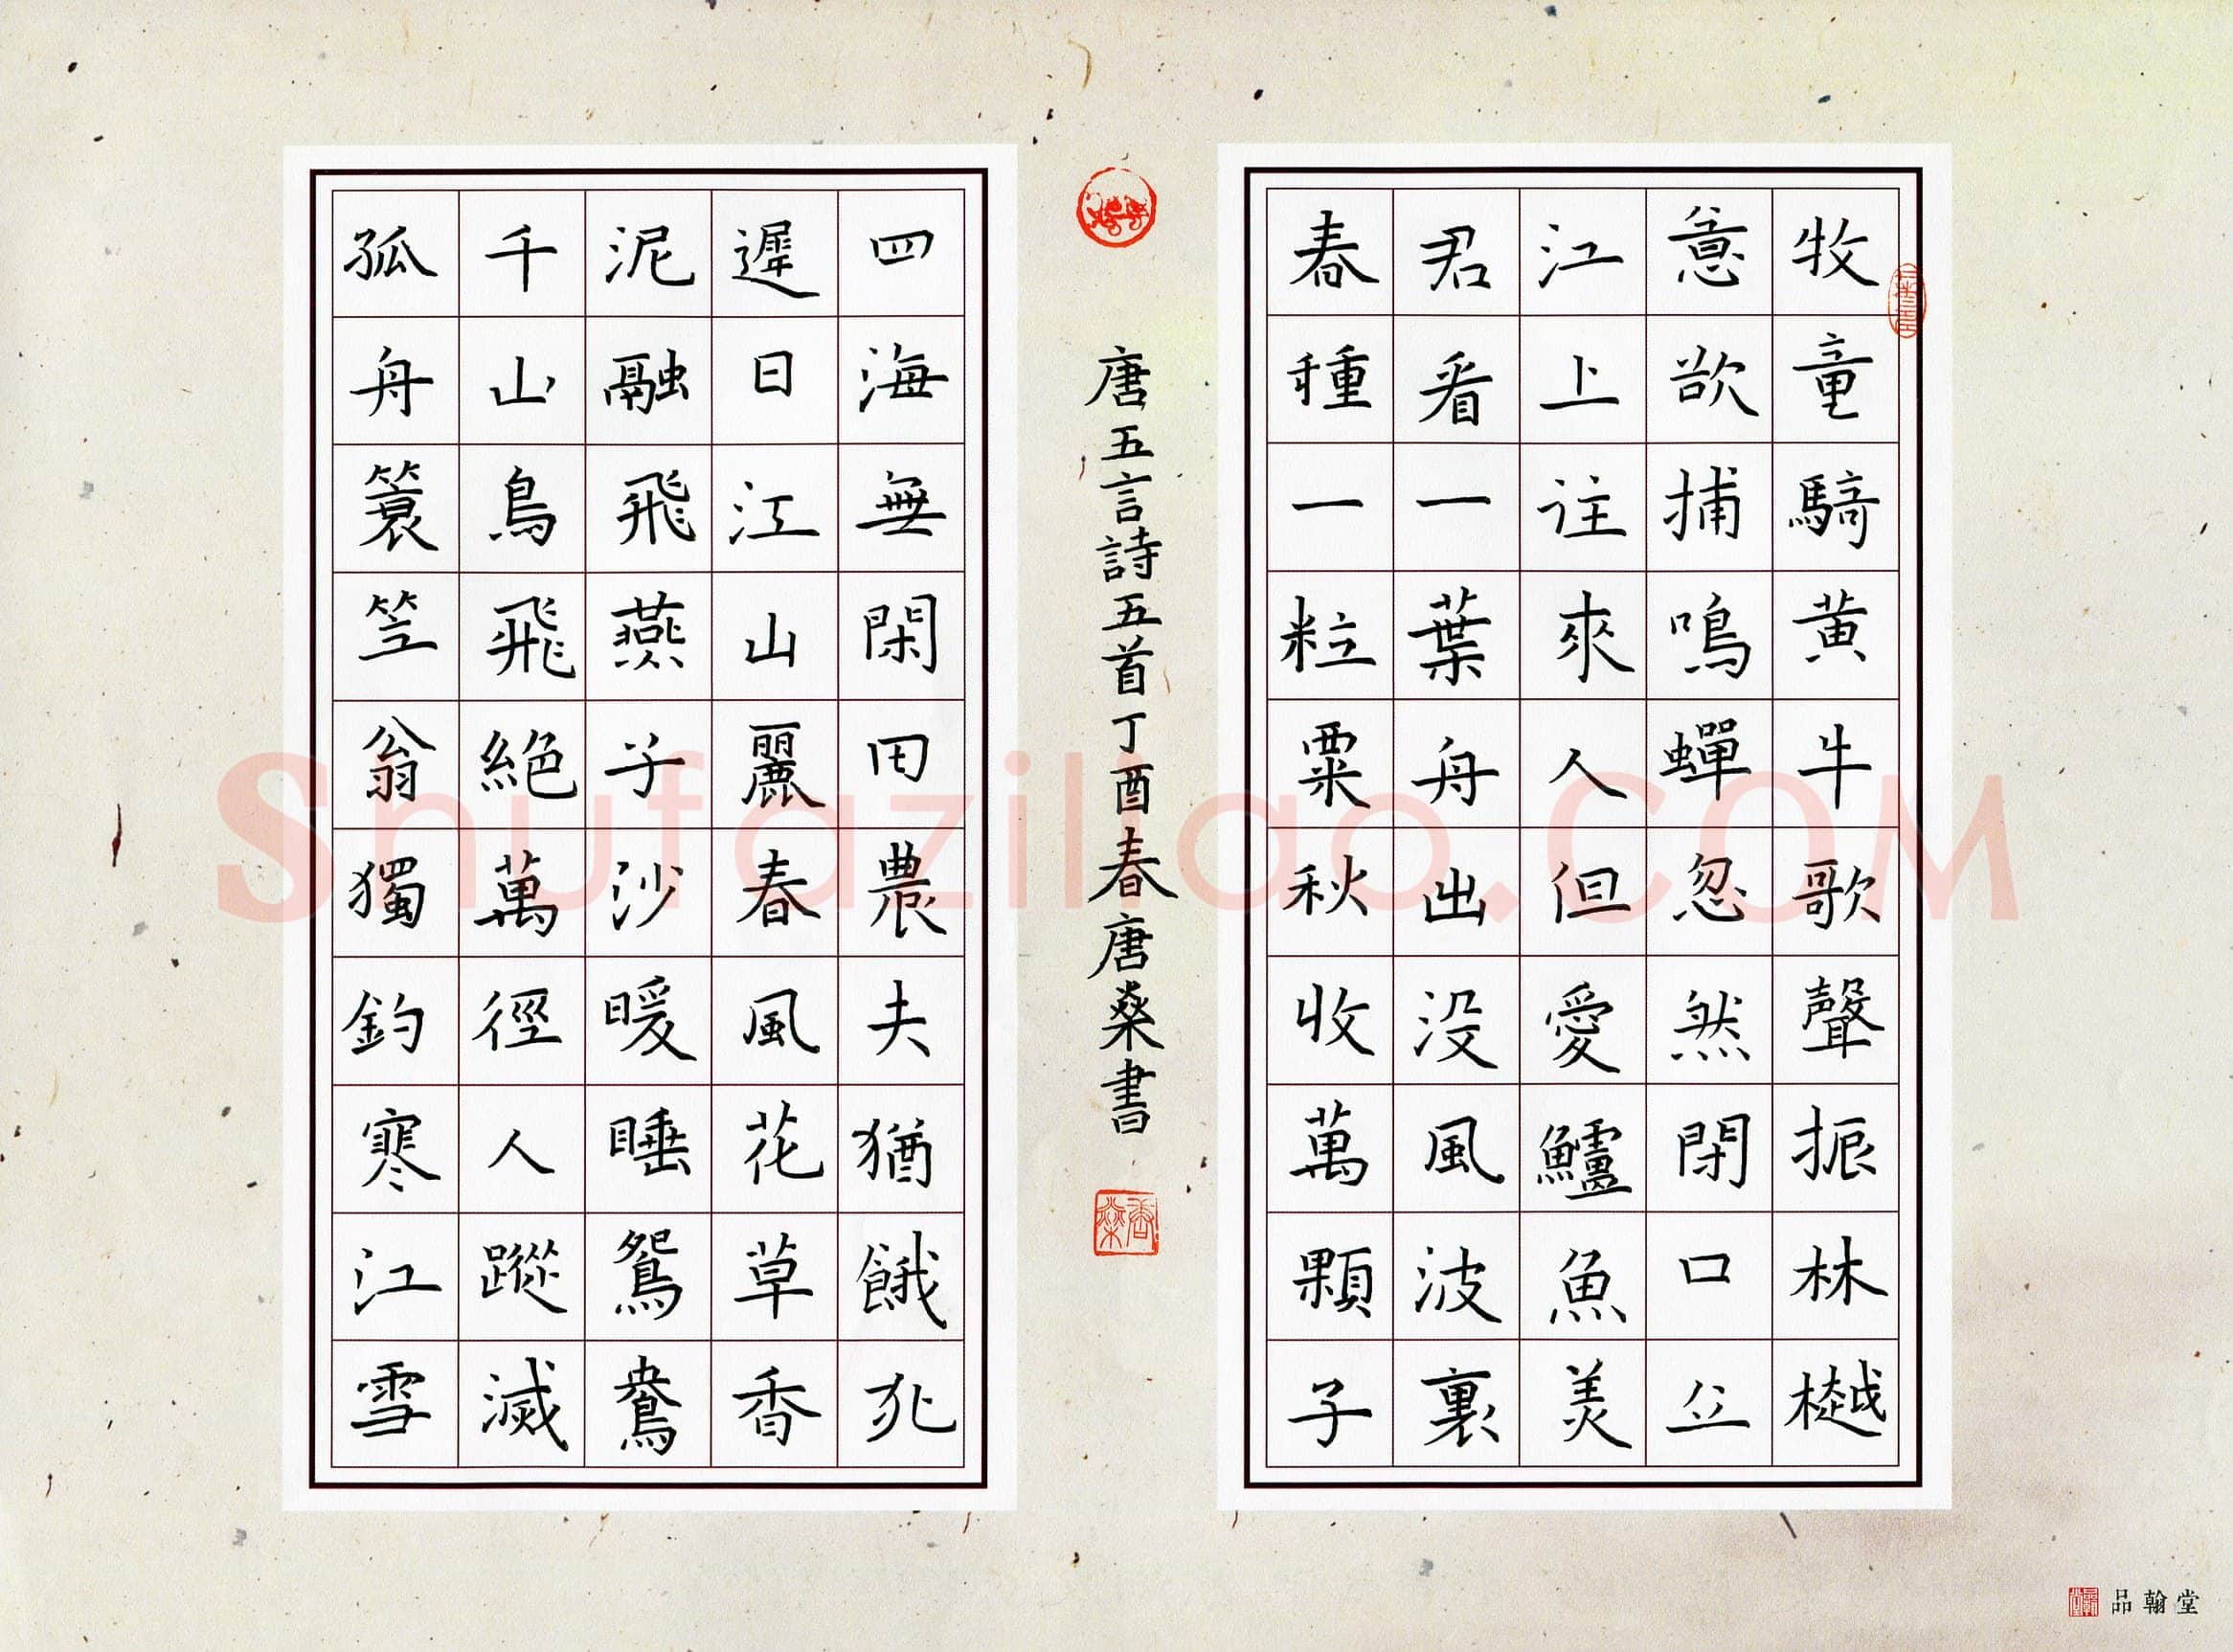 牧童騎黃牛歌聲振林樾
意欲捕鳴蟬忽然閉口立
江上往來人但愛鱸魚美
君看一葉舟出没風波裏
春種一粒粟秋收萬顆子
唐五言詩五首丁酉春唐燊書
四海無閑田農夫猶餓死
遲日江山麗春風花草香
泥融飛燕子沙暖睡鴛鴦
千山鳥飛絕萬徑人蹤滅
孤舟簑笠翁獨釣寒江雪
Shufaziliao.COM
品翰堂